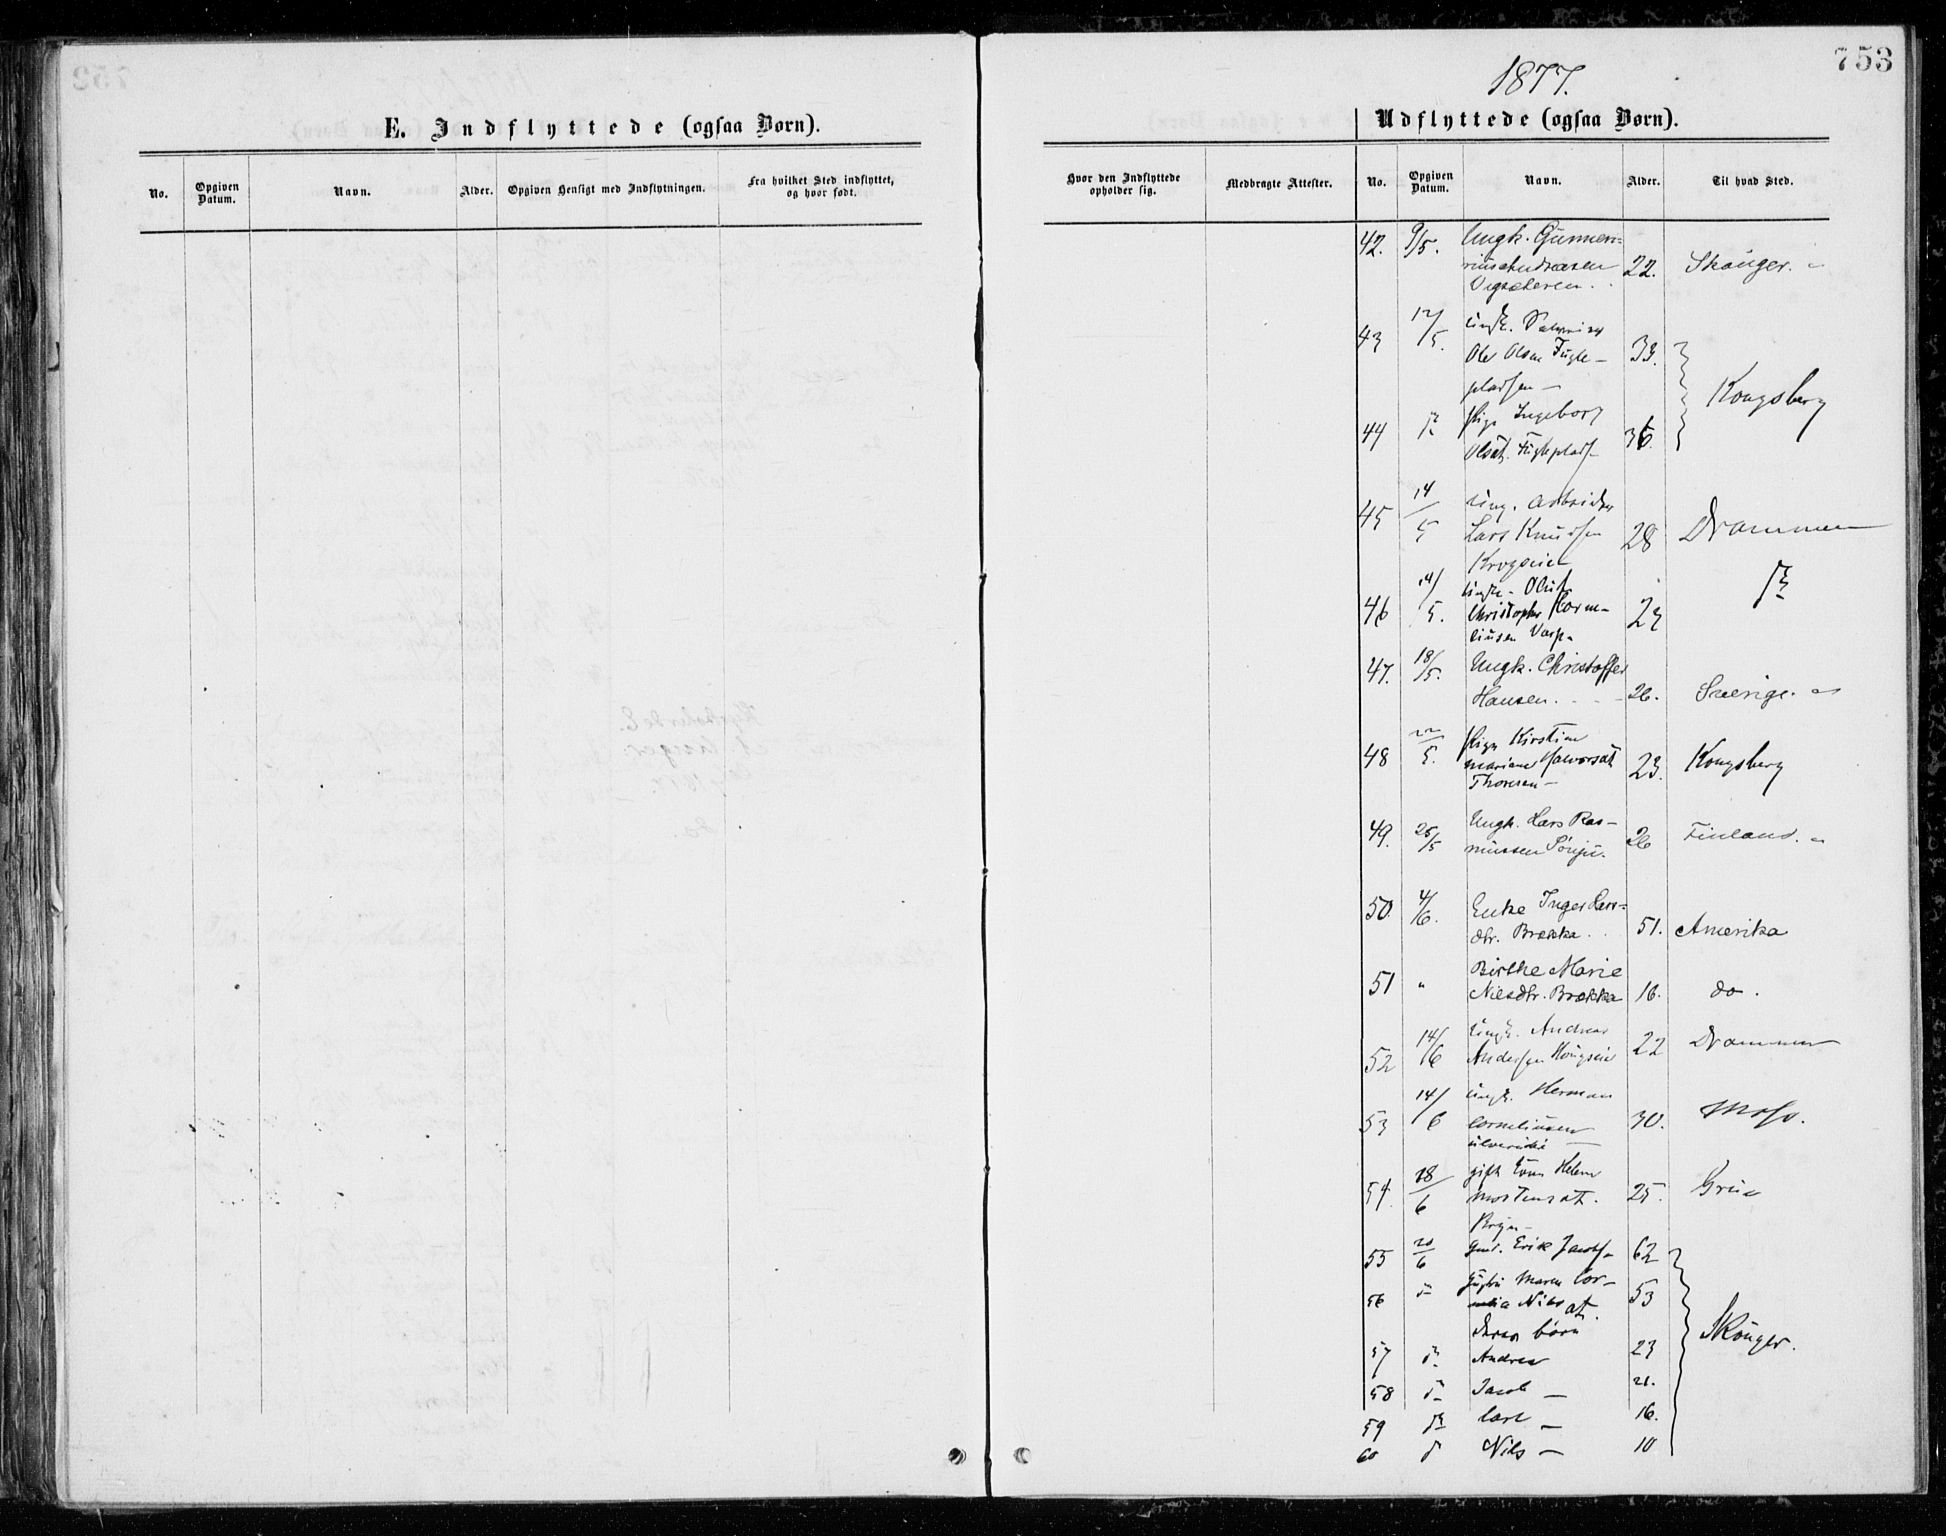 753
1877.
E. Indflyttede (ogsaa Børn).
Udflyttede (ogsaa Børn).
No.
Opgiven Datum.
Navn.
Alder.
Opgiven Hensigt med Indflytningen.
Fra hvilket Sted indflyttet, og hvor født.
Hvor den Indflyttede opholder sig.
Medbragte Attester.
No.
Opgiven Datum.
Navn.
Alder.
Til hvad Sted.
42. 9/5. Ungk. Gunnerius Andreasen 22. Skouger.
43 12/5. Ungk. Ole Olsen Fuglepladsen 33.
Kongsberg
44 Pige Ingeborg Olsdt. Fugleplads 36.
45 14/5 Ung. Arbeider Lars Knudsen Krogseie 28 Drammen
46 14/5. Ungk. Christopher Corneliusen 23
47. 18/5. Ungk. Christoffer Hansen. 26. Sverige.
48 22/5. Pige Kirstine Mariane Halvorsdt Thoresen 23. Kongsberg
49. 25/5 Ungk. Lars Rasmussen 26 Finland.
50. 4/6. Enke Inger Larsdtr. Brækka 51. Amerika
51 " Birthe Marie Nilsdtr. Brækka 16. do.
52 14/6 Ungk. Andreas Andersen 22 Drammen
53 14/6 Ungk. Herman Corneliusen 30. Moss.
54. 18/6 gift Helene Mortensdt. 25. Grue
55 20/6 Gmd. Erik Jacobsen 62
56 Maren Cornelia Nilsdt. 53
deres børn
57 Andreas 23
Skouger.
58 Jacob 21.
59 Carl 16.
60 Nils 10